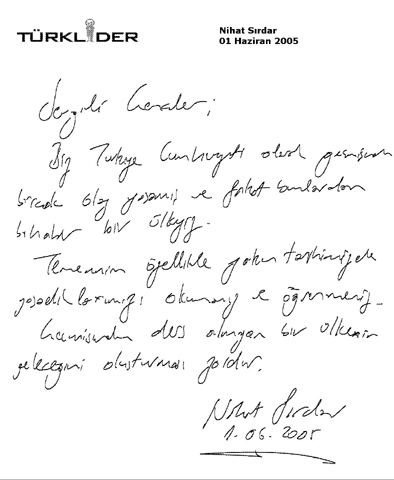 TÜRKLİDER
Nihat Sırdar
01 Haziran 2005
Sevgili Gençler;
Biz Türkiye Cumhuriyeti olarak geçmişinde
birçok olay yaşamış ve fakat bunlardan
bihaber bir ülkeyiz.
Temennim özellikle yakın tarihimizde
yaşadıklarımızı okumanız ve öğrenmeniz.
Geçmişinden ders almayan bir ülkenin
geleceğini oluşturması zordur.
Nihat Sırdar
1.06.2005